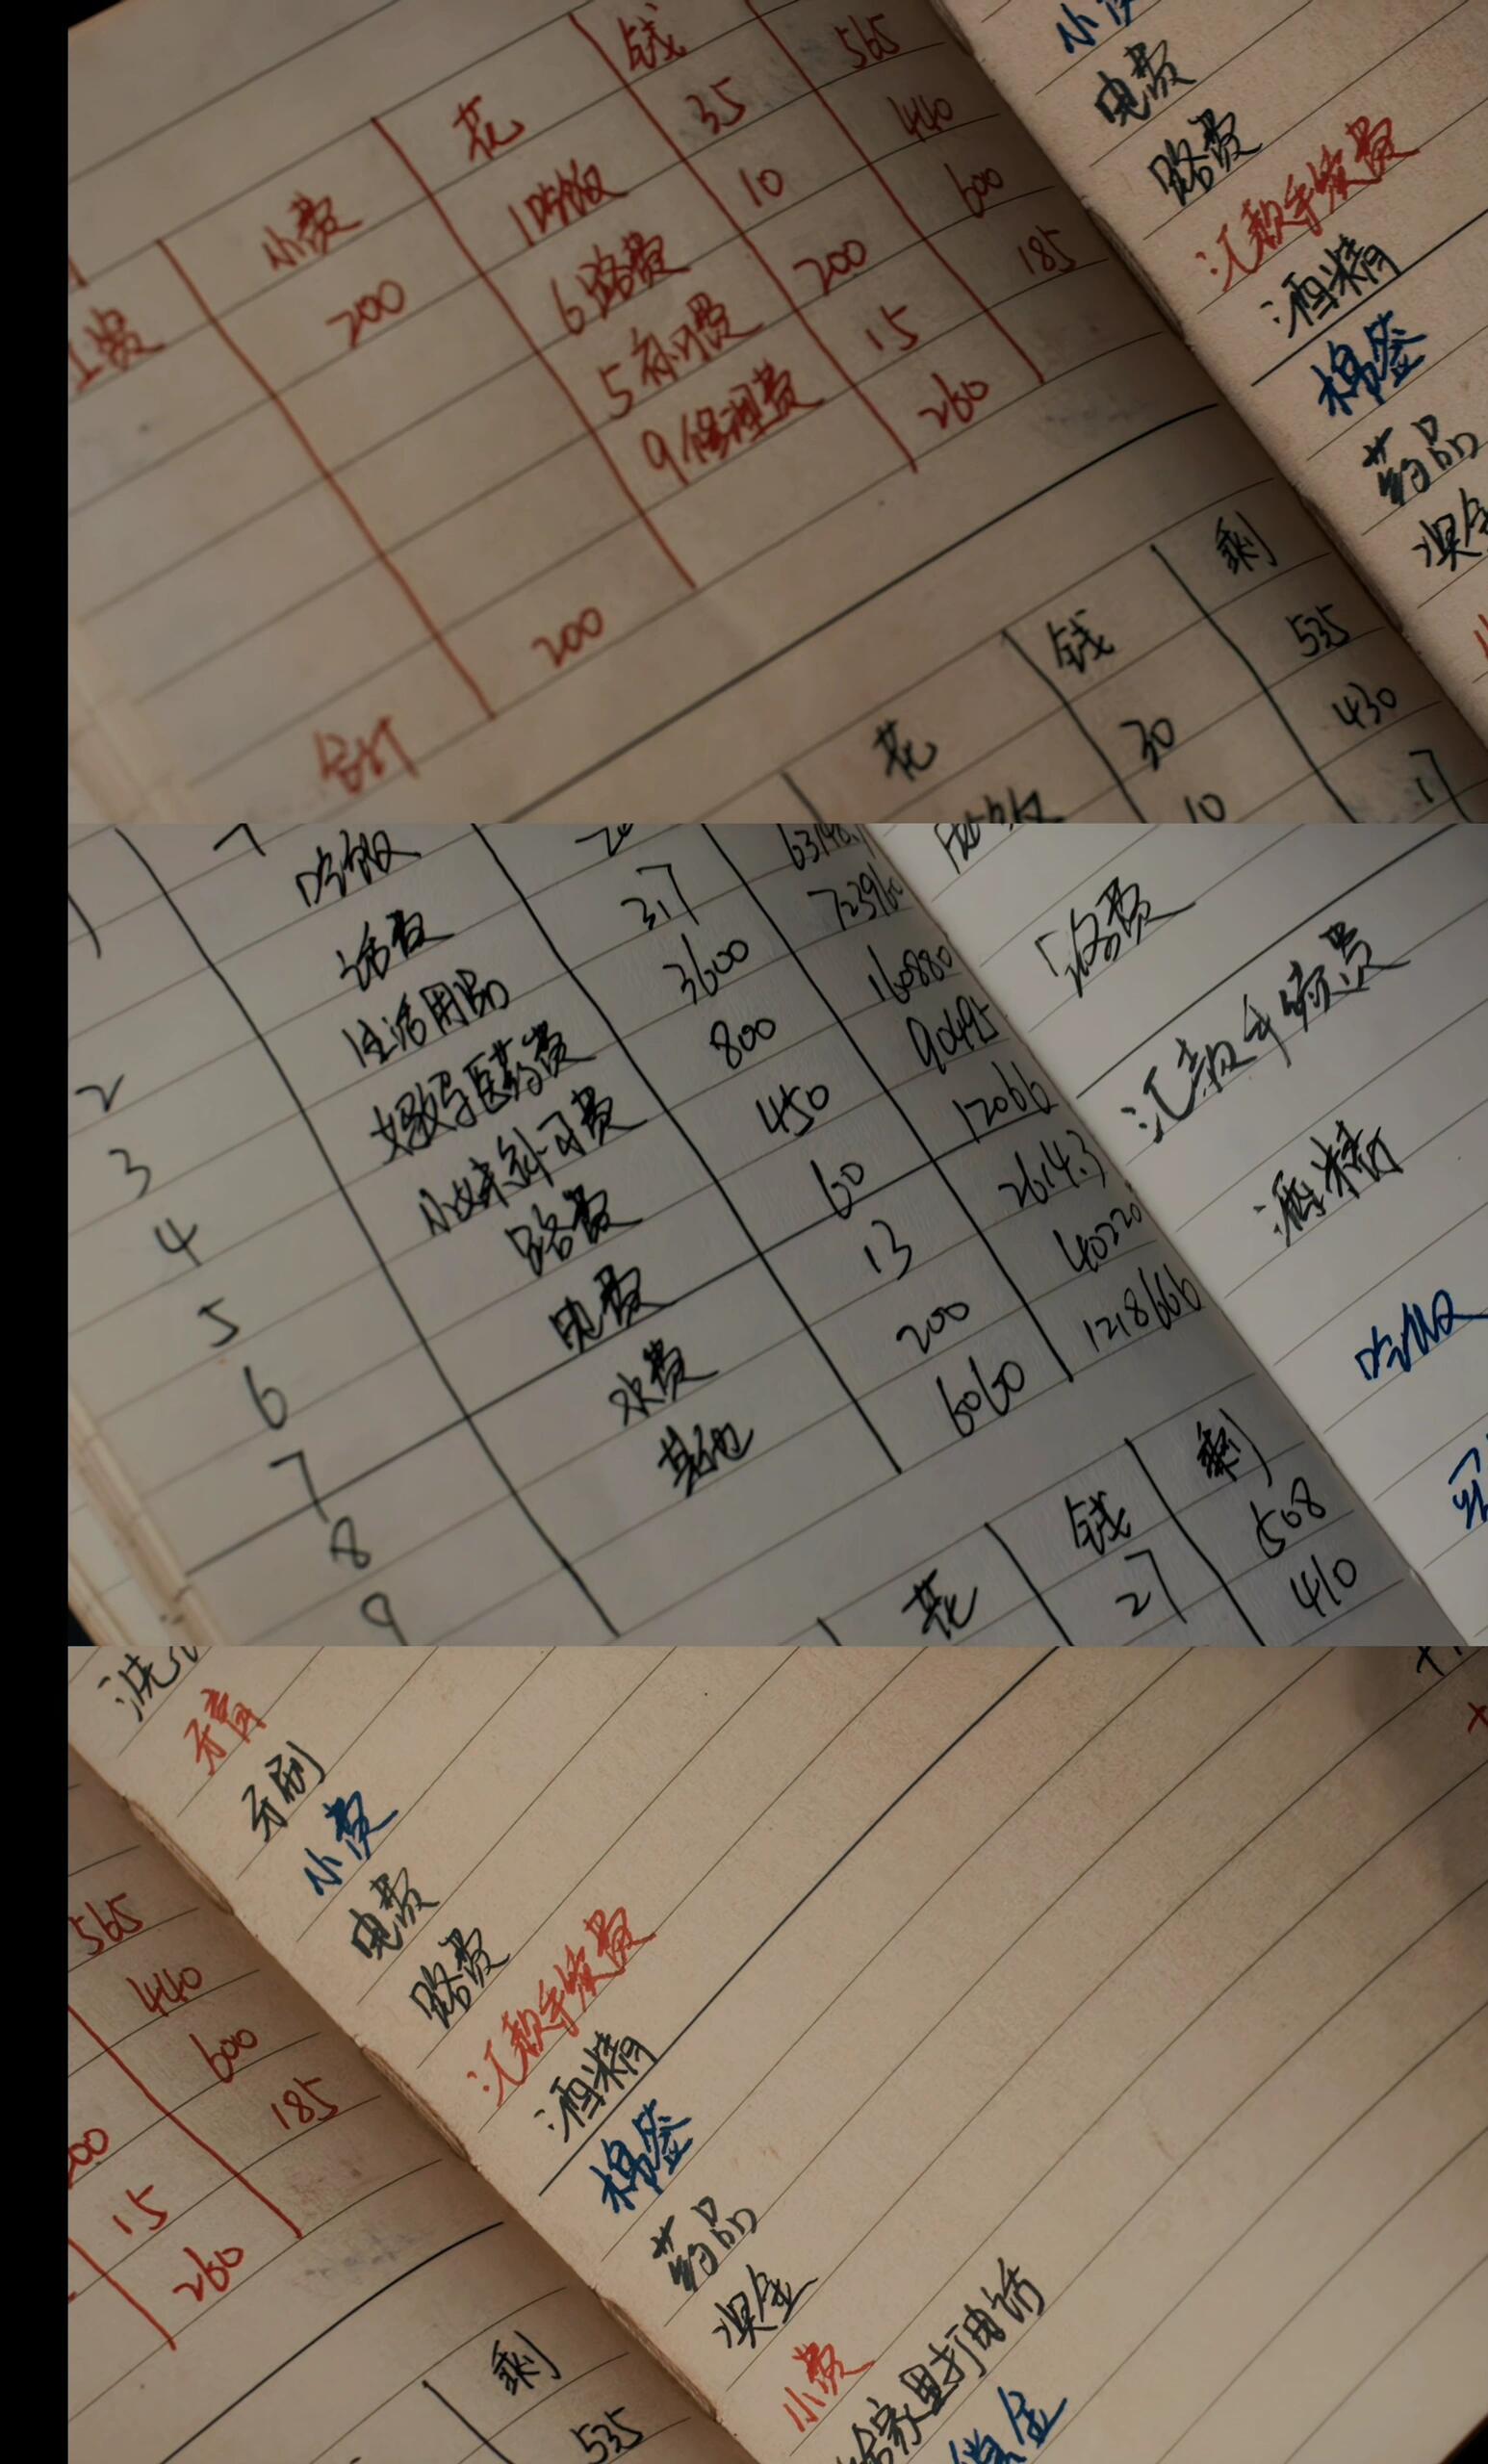 钱 565
小费 花 35 440
工费 200 1吃饭 10 600
6路费 200 185
5补习费 15
9修理费 260
200
合计
电费
路费
汇款手续费
酒精
棉签
药品
剩
钱 535
花 30 430
10
吃饭
话费 317
2 生活用品 3600 160880
3 女教导医药费 800
4 小妹补习费 450 12066
5 路费 60 2614.3
6 电费 13 40220
7 水费 200 1218666
8 其他 6060
9
路费
汇款手续费
酒精
吃饭
剩
钱 508
花 27 410
牙膏
牙刷
小费
电费
路费
汇款手续费
酒精
棉签
药品
小费
给家里打电话
565
440
600
185
15
260
剩
535